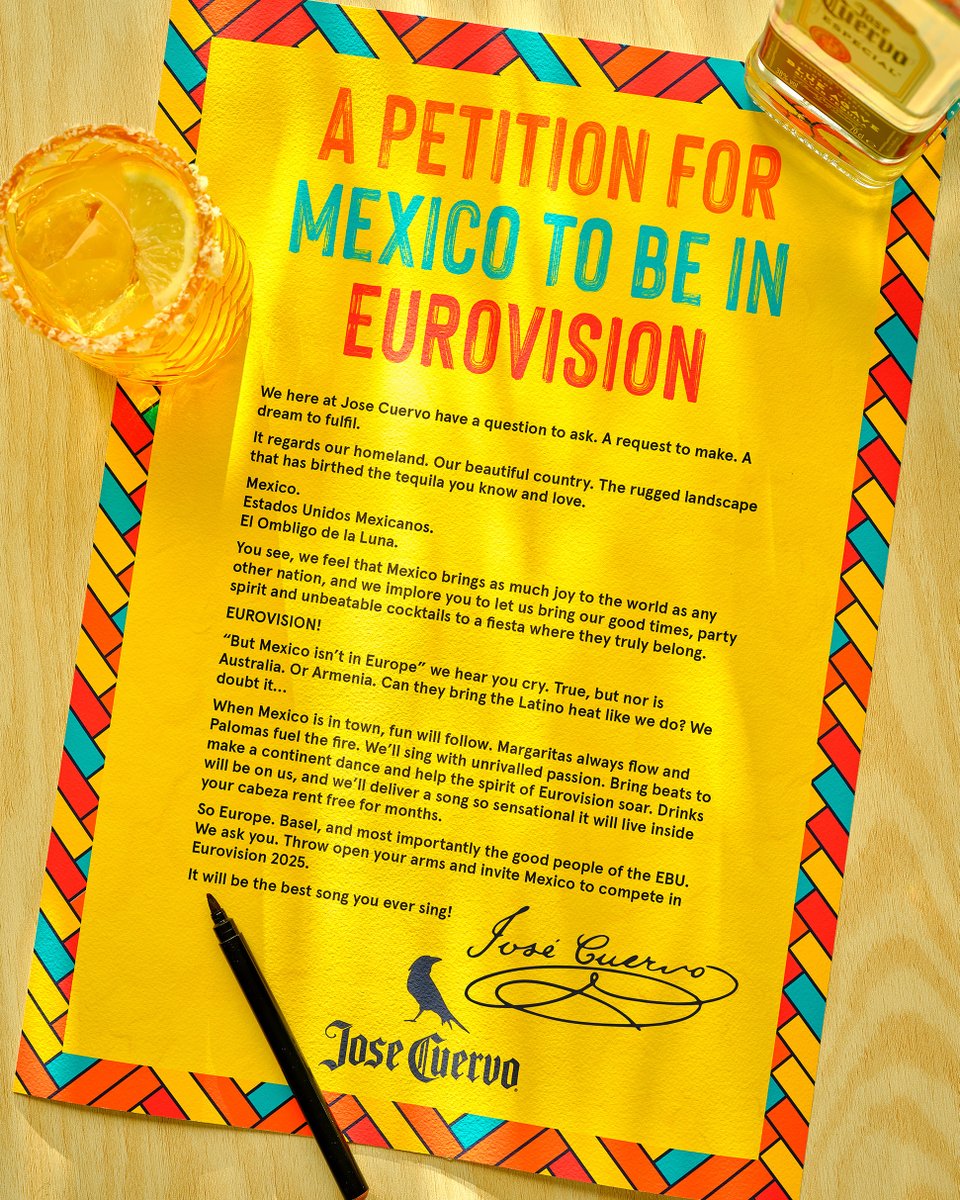 Jose
Cuervo
ESPECIAL
A PETITION FOR
MEXICO TO BE IN
EUROVISION
We here at Jose Cuervo have a question to ask. A request to make. A
dream to fulfil.
It regards our homeland. Our beautiful country. The rugged landscape
that has birthed the tequila you know and love.
Mexico.
Estados Unidos Mexicanos.
El Ombligo de la Luna.
You see, we feel that Mexico brings as much joy to the world as any
other nation, and we implore you to let us bring our good times, party
spirit and unbeatable cocktails to a fiesta where they truly belong.
EUROVISION!
“But Mexico isn’t in Europe” we hear you cry. True, but nor is
Australia. Or Armenia. Can they bring the Latino heat like we do? We
doubt it...
When Mexico is in town, fun will follow. Margaritas always flow and
Palomas fuel the fire. We’ll sing with unrivalled passion. Bring beats to
make a continent dance and help the spirit of Eurovision soar. Drinks
will be on us, and we’ll deliver a song so sensational it will live inside
your cabeza rent free for months.
So Europe. Basel, and most importantly the good people of the EBU.
We ask you. Throw open your arms and invite Mexico to compete in
Eurovision 2025.
It will be the best song you ever sing!
José Cuervo
Jose Cuervo